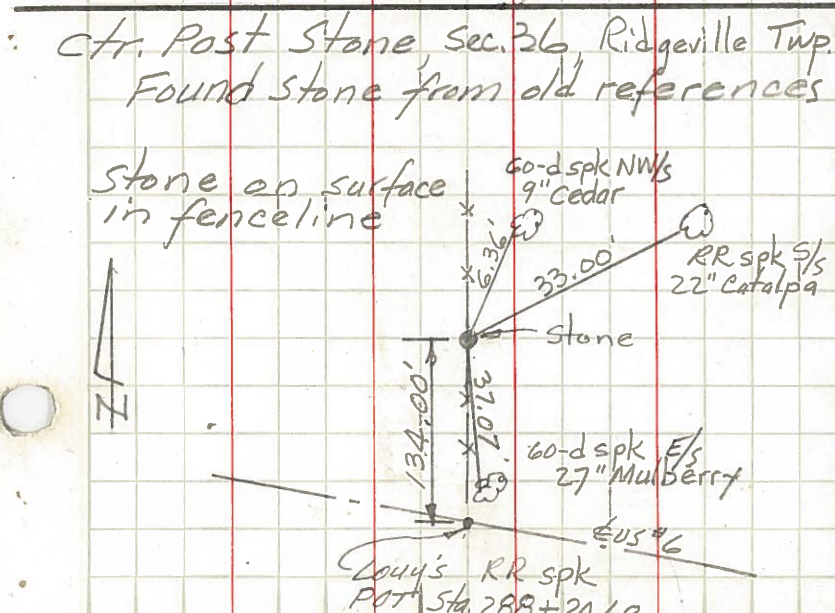 Ctr. Post Stone, Sec. 36, Ridgeville Twp.
Found Stone from old references
Stone on surface
in fenceline
60-d spk NW/s
9" Cedar
6.36'
33.00'
RR spk S/s
22" Catalpa
Stone
N
134.00'
37.07'
60-d spk E/s
27" Mulberry
℄ US #6
RR spk
POT Sta. 288+20